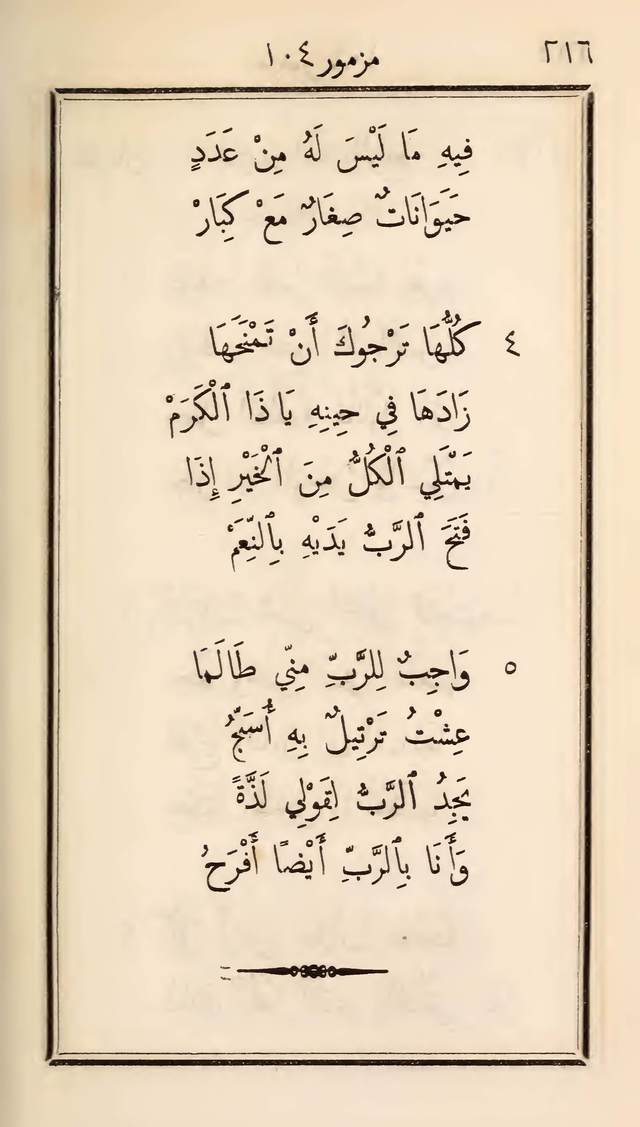 ٢١٦
مزمور ١٠٤
فِيهِ مَا لَيْسَ لَهُ مِنْ عَدَدٍ
حَيَوَانَاتٌ صِغَارٌ مَعْ كِبَارْ
٤ كُلُّهَا تَرْجُوكَ أَنْ تَمْنَحَهَا
زَادَهَا فِي حِينِهِ يَا ذَا ٱلْكَرَمْ
يَمْتَلِي ٱلْكُلُّ مِنَ ٱلْخَيْرِ إِذَا
فَتَحَ ٱلرَّبُّ يَدَيْهِ بِٱلنِّعَمْ
٥ وَاجِبٌ لِلرَّبِّ مِنِّي طَالَمَا
عِشْتُ تَرْتِيلٌ بِهِ أُسَبِّحُ
يَجِدُ ٱلرَّبُّ لِقَوْلِي لَذَّةً
وَأَنَا بِٱلرَّبِّ أَيْضًا أَفْرَحُ